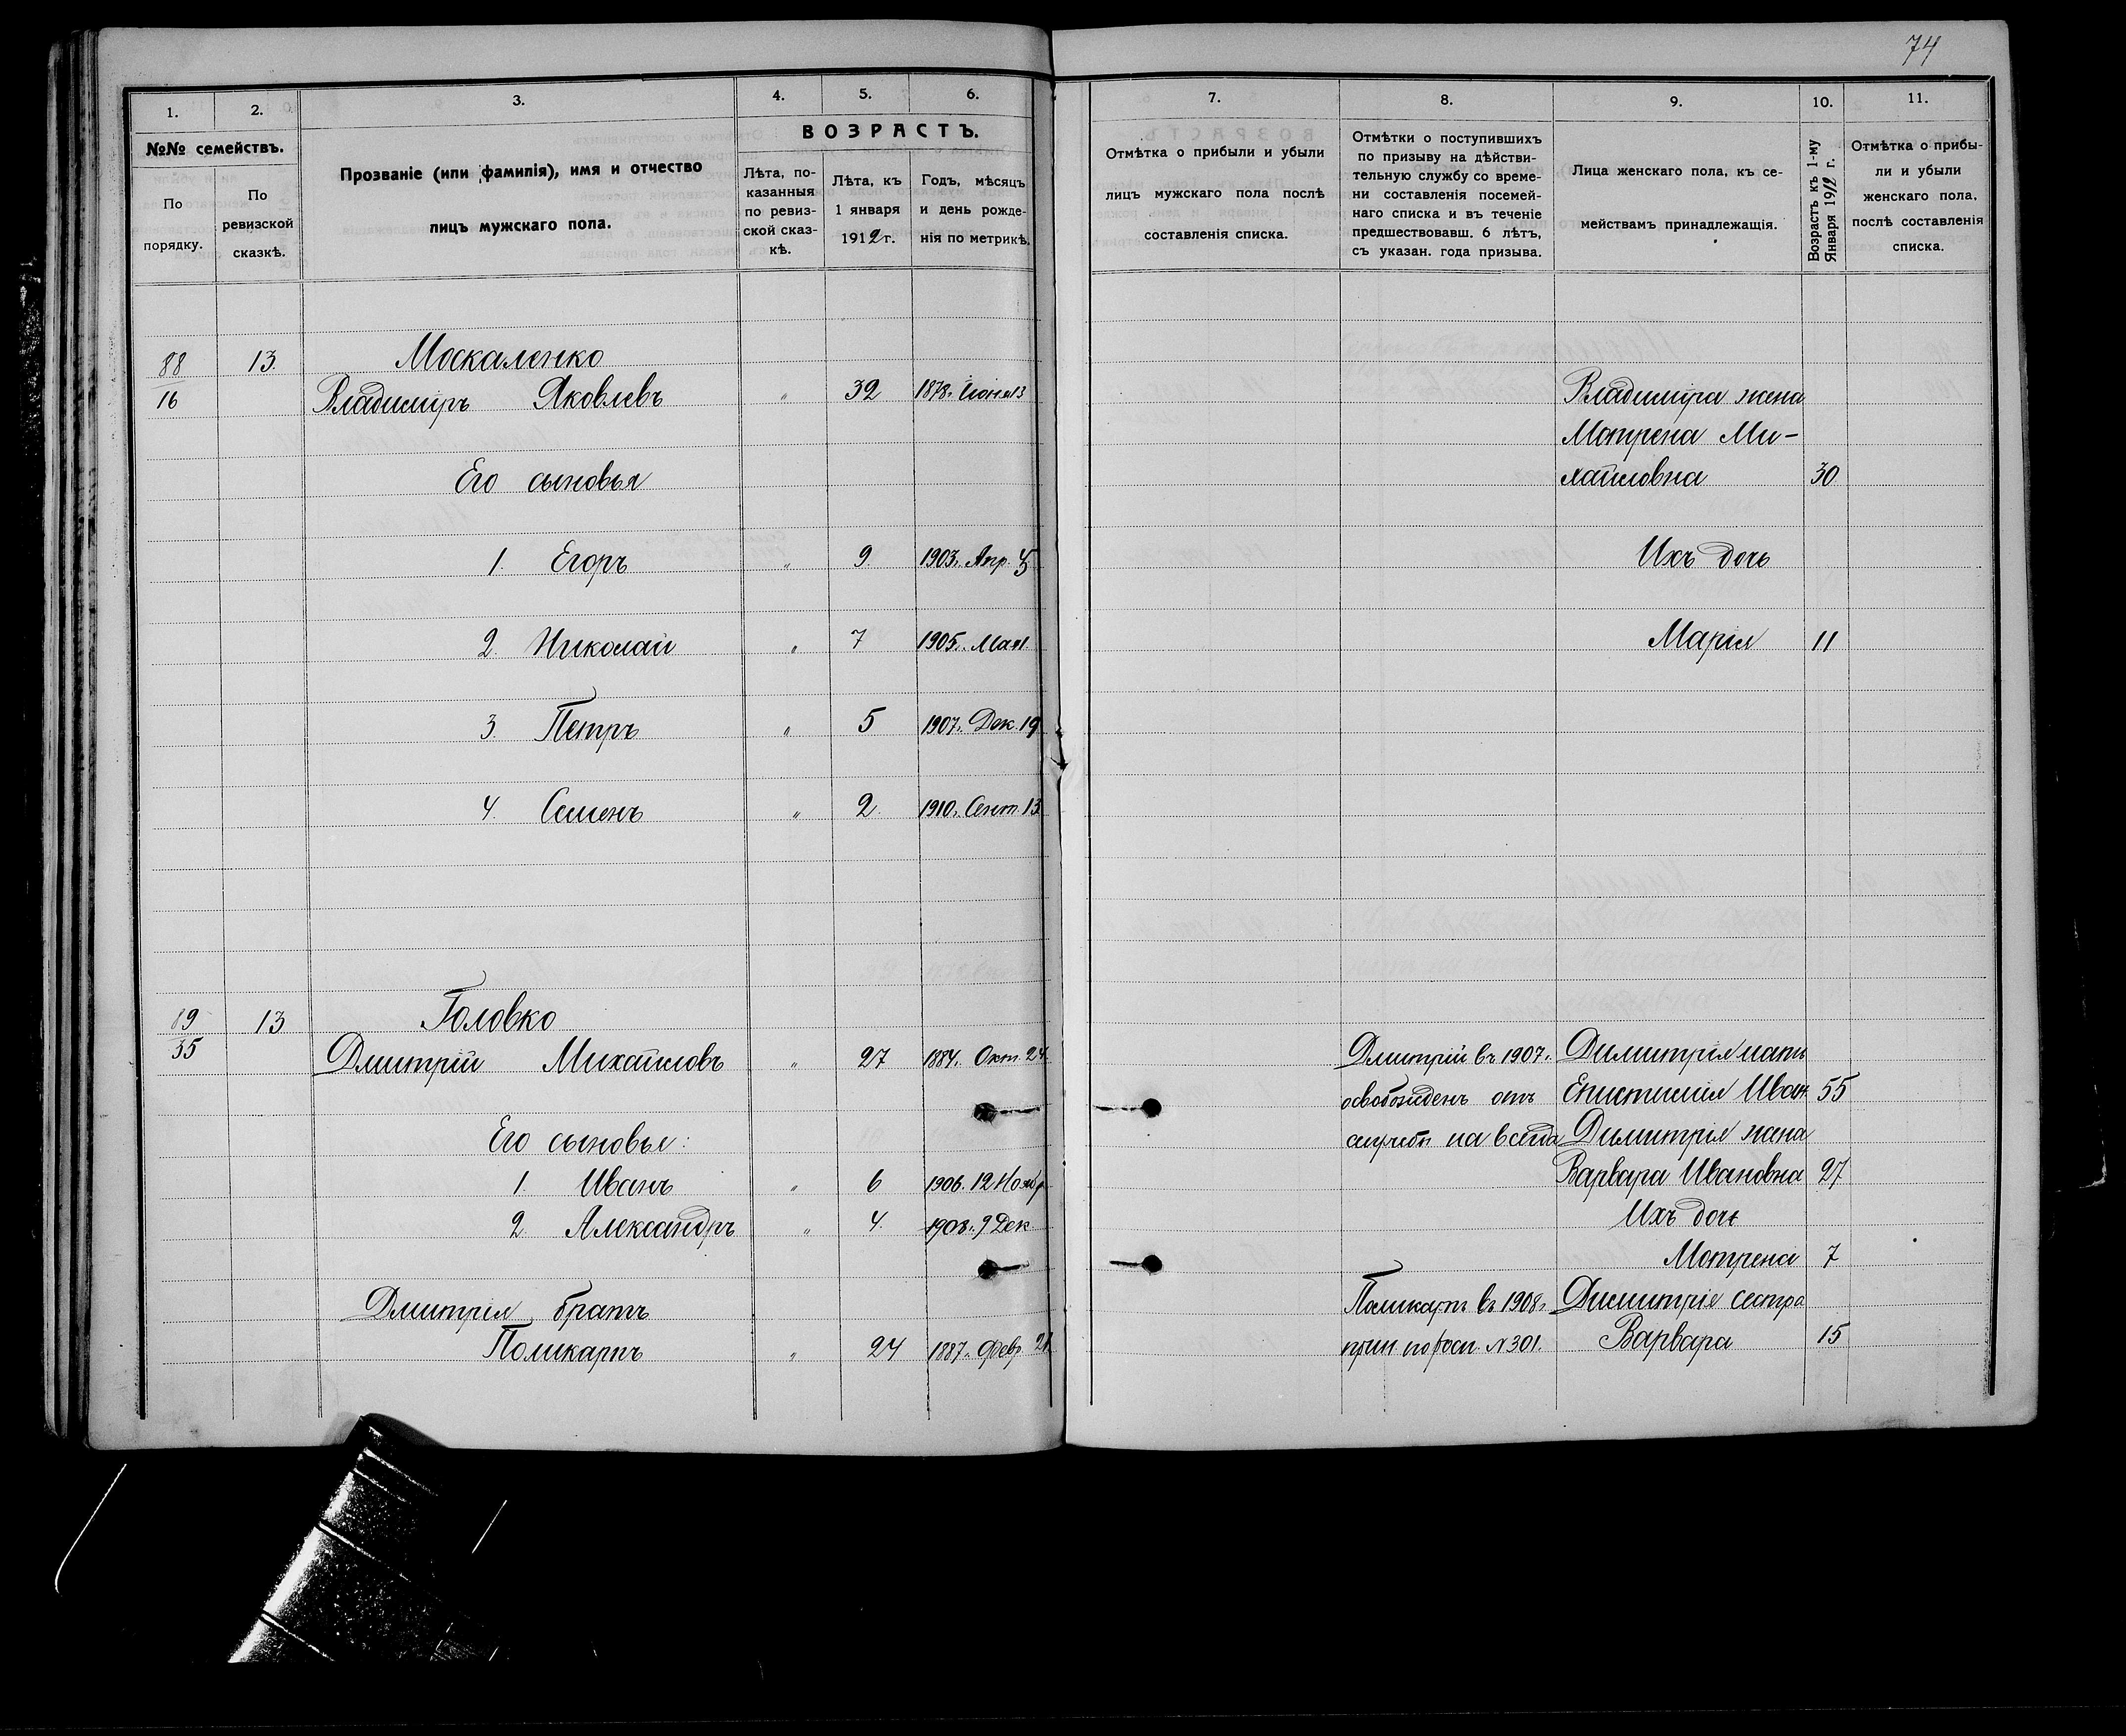 74
1. 2. 3. 4. 5. 6. 7. 8. 9. 10. 11.
№№ семействъ.
По порядку.
По ревизской сказкѣ.
Прозваніе (или фамилія), имя и отчество
лицъ мужскаго пола.
ВОЗРАСТЪ.
Лѣта, по-
казанныя
по ревиз-
ской сказ-
кѣ.
Лѣта, къ
1 января
1912 г.
Годъ, мѣсяцъ
и день рожде-
нія по метрикѣ.
Отмѣтка о прибыли и убыли
лицъ мужскаго пола послѣ
составленія списка.
Отмѣтки о поступившихъ
по призыву на дѣйстви-
тельную службу со време-
ни составленія посемей-
наго списка и въ теченіе
предшествовавш. 6 лѣтъ,
съ указан. года призыва.
Лица женскаго пола, къ се-
мействамъ принадлежащія.
Возрастъ къ 1-му
Января 1912 г.
Отмѣтка о прибы-
ли и убыли
женскаго пола,
послѣ составленія
списка.
88 13. Москаленко
16 Владиміръ Яковлевъ " 32 1878г. Іюня 13 Владиміра жена
Мотрена Ми-
Его сыновья хайловна 30
1. Егоръ " 9. 1903г. Апр. Ихъ дочь
2. Николай " 7 1905г. Мая 1. Марія 11
3. Петръ " 5 1907г. Дек. 19
4. Семенъ " 2. 1910г. Сент. 13
89 13 Головко
35 Дмитрій Михайловъ " 27 1884г. Окт. 24 Дмитрій въ 1907г. Димитрія мать
освобожденъ отъ Епистимія Иван. 55
Его сыновья: службы на всегда Димитрія жена
1. Иванъ " 6 1906. 12 Ноябр. Варвара Ивановна 27
2. Александръ " 4. 1908г. 9 Дек. Ихъ дочь
Мотрена 7
Дмитрія братъ Поликарпъ въ 1908г. Димитрія сестра
Поликарпъ " 24 1887г. Февр. 21 прин по росп. № 301. Варвара 15